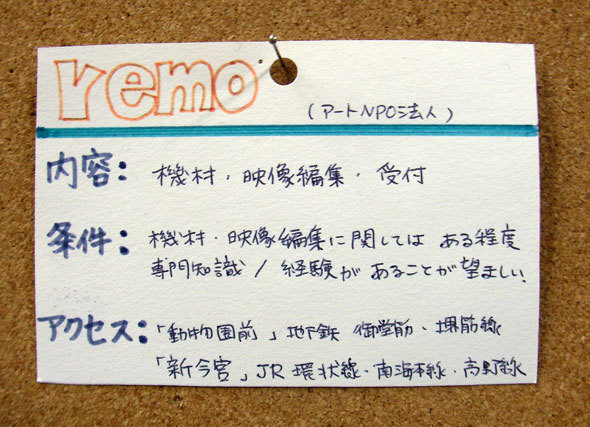 remo
(アートNPO法人)
内容: 機材・映像編集・受付
条件: 機材・映像編集に関しては ある程度
専門知識 / 経験が あることが望ましい
アクセス: 「動物園前」地下鉄 御堂筋・堺筋線
「新今宮」JR 環状線・南海本線・高野線